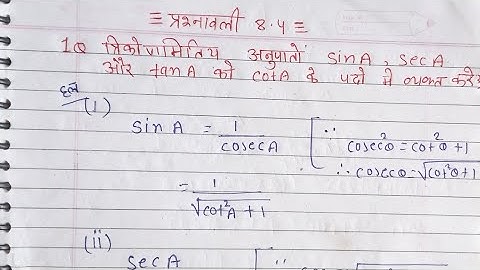 ≡ प्रश्नावली 8.4 ≡
1Q त्रिकोणमितिय अनुपातों sinA, secA
और tanA को cotA के पदो में व्यक्त करे
हल
(i)
sin A = 1/cosecA [∵ cosec²θ = cot²θ + 1
∴ cosecθ = √(cot²θ + 1)
= 1/√(cot²A + 1)
(ii)
sec A